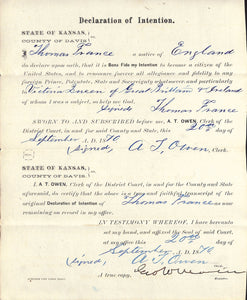 Declaration of Intention.
STATE OF KANSAS,
COUNTY OF DAVIS.
I Thomas France a native of England
do declare upon oath, that it is Bona Fide my Intention to become a citizen of the
United States, and to renounce forever all allegiance and fidelity to any foreign
Prince, Potentate, State and Sovereignty whatsoever, and particularly to
Victoria Queen of Great Brittain & Ireland
of whom I was a subject, so help me God.
Signed Thomas France
SWORN TO AND SUBSCRIBED before me, A. T. OWEN, Clerk of the
District Court, in and for said County and State, this 20th day of
September A. D. 18
(Signed) A T, Owen, Clerk.
STATE OF KANSAS,
COUNTY OF DAVIS.
I, A. T. OWEN, Clerk of the District Court, in and for the County and State
aforesaid, do certify that the above is a true and faithful transcript of the
original Declaration of Intention of Thomas France as now
remaining on record in my office.
IN TESTIMONY WHEREOF, I have hereunto
set my hand, and affixed the Seal of said Court,
at my office this 20th day of
September A. D. 18
(Signed) A T, Owen
Clerk.
A true copy,